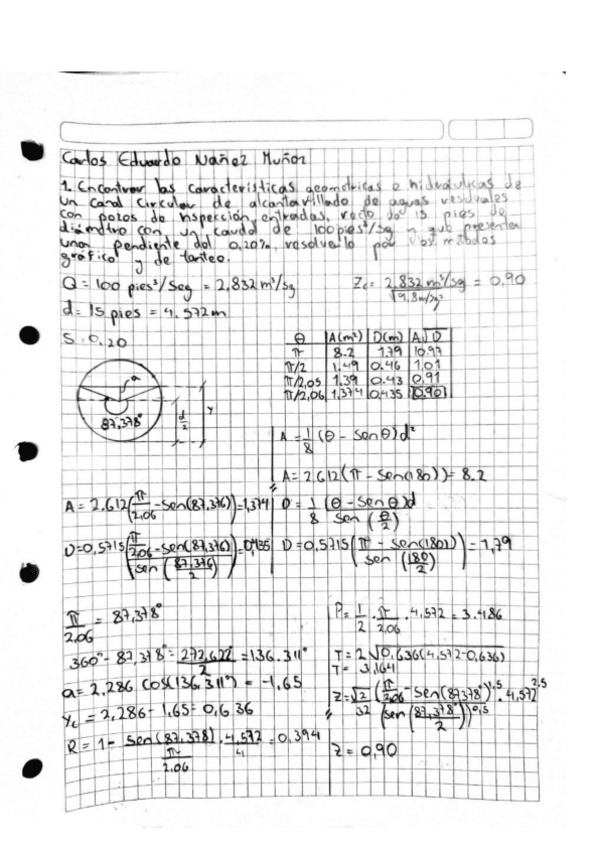 Carlos Eduardo Nañez Muñoz
1. Encontrar las características geometricas e hidraulicas de
un canal Circular de alcantarillado de aguas residuales
con pozos de inspección, entradas, recto de 15 pies de
diámetro con un caudal de 100 pies³/sg y que presenta
una pendiente del 0,20%, resolverlo por los métodos
gráfico y de tanteo.
Q = 100 pies³/Seg = 2,832 m³/sg
Zc = 2,832 m³/sg / √9,8 m/sg² = 0,90
d = 15 pies = 4.572m
S = 0,20
θ A(m²) D(m) A√D
π 8.2 1.79 10.97
π/2 1.49 0.46 1,01
π/2,05 1,39 0.43 0,91
π/2,06 1,374 0,435 0,90
a
87,378°
d/2
y
A = 1/8 (θ - senθ)d²
A = 2.612(π - sen(180)) = 8.2
A = 2.612(π/2.06 - sen(87,376)) = 1,374
D = 1/8 (θ - senθ)d / sen(θ/2)
D = 0,5715(π/2.06 - sen(87,376) / sen(87,376/2)) = 0,435
D = 0,5715(π - sen(180) / sen(180/2)) = 1,79
π/2.06 = 87,378°
P = 1/2 · π/2,06 · 4,572 = 3.486
360° - 87,378° = 272,622°/2 = 136.311°
T = 2√0,636(4,572-0,636)
T = 3,164
a = 2,286 cos(136,311°) = -1,65
Z = √2/32 (π/2,06 - sen(87378))^1,5 / (sen(87,378°/2))^0,5 · 4,572^2,5
Yc = 2,286 - 1,65 = 0,636
R = 1 - sen(87,378)/(π/2,06) · 4,572/4 = 0,394
Z = 0,90